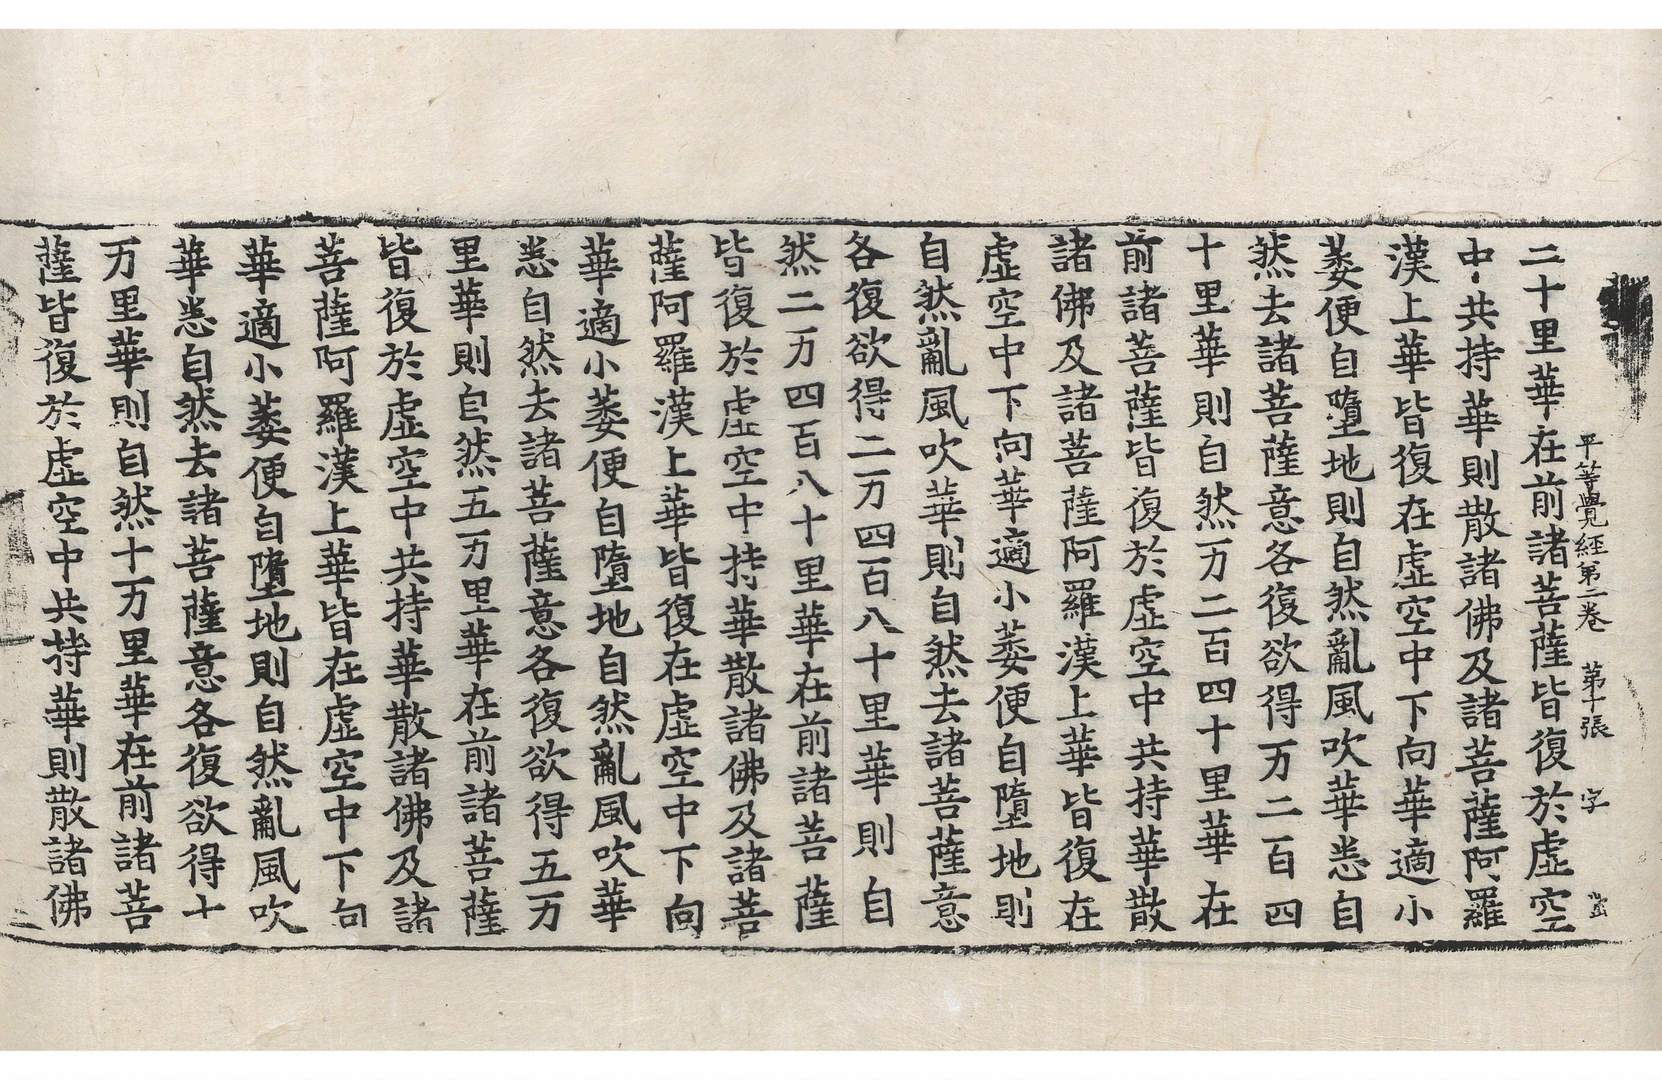 平等覺經第二卷　第十張　字
二十里華在前諸菩薩皆復於虛空
中共持華則散諸佛及諸菩薩阿羅
漢上華皆復在虛空中下向華適小
萎便自墮地則自然亂風吹華悉自
然去諸菩薩意各復欲得万二百四
十里華則自然万二百四十里華在
前諸菩薩皆復於虛空中共持華散
諸佛及諸菩薩阿羅漢上華皆復在
虛空中下向華適小萎便自墮地則
自然亂風吹華則自然去諸菩薩意
各復欲得二万四百八十里華則自
然二万四百八十里華在前諸菩薩
皆復於虛空中持華散諸佛及諸菩
薩阿羅漢上華皆復在虛空中下向
華適小萎便自墮地自然亂風吹華
悉自然去諸菩薩意各復欲得五万
里華則自然五万里華在前諸菩薩
皆復於虛空中共持華散諸佛及諸
菩薩阿羅漢上華皆在虛空中下向
華適小萎便自墮地則自然亂風吹
華悉自然去諸菩薩意各復欲得十
万里華則自然十万里華在前諸菩
薩皆復於虛空中共持華則散諸佛